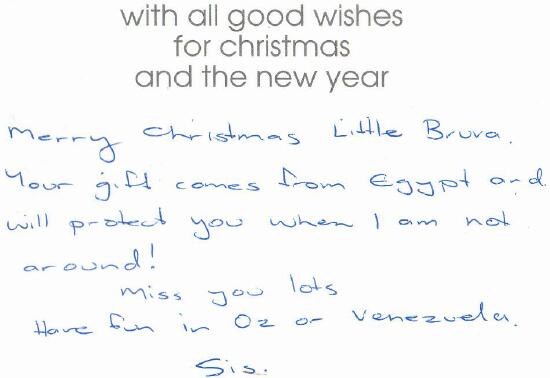 with all good wishes
for christmas
and the new year
Merry Christmas Little Bruva.
Your gift comes from Egypt and
will protect you when I am not
around!
Miss you lots
Have fun in Oz or Venezuela.
Sis.